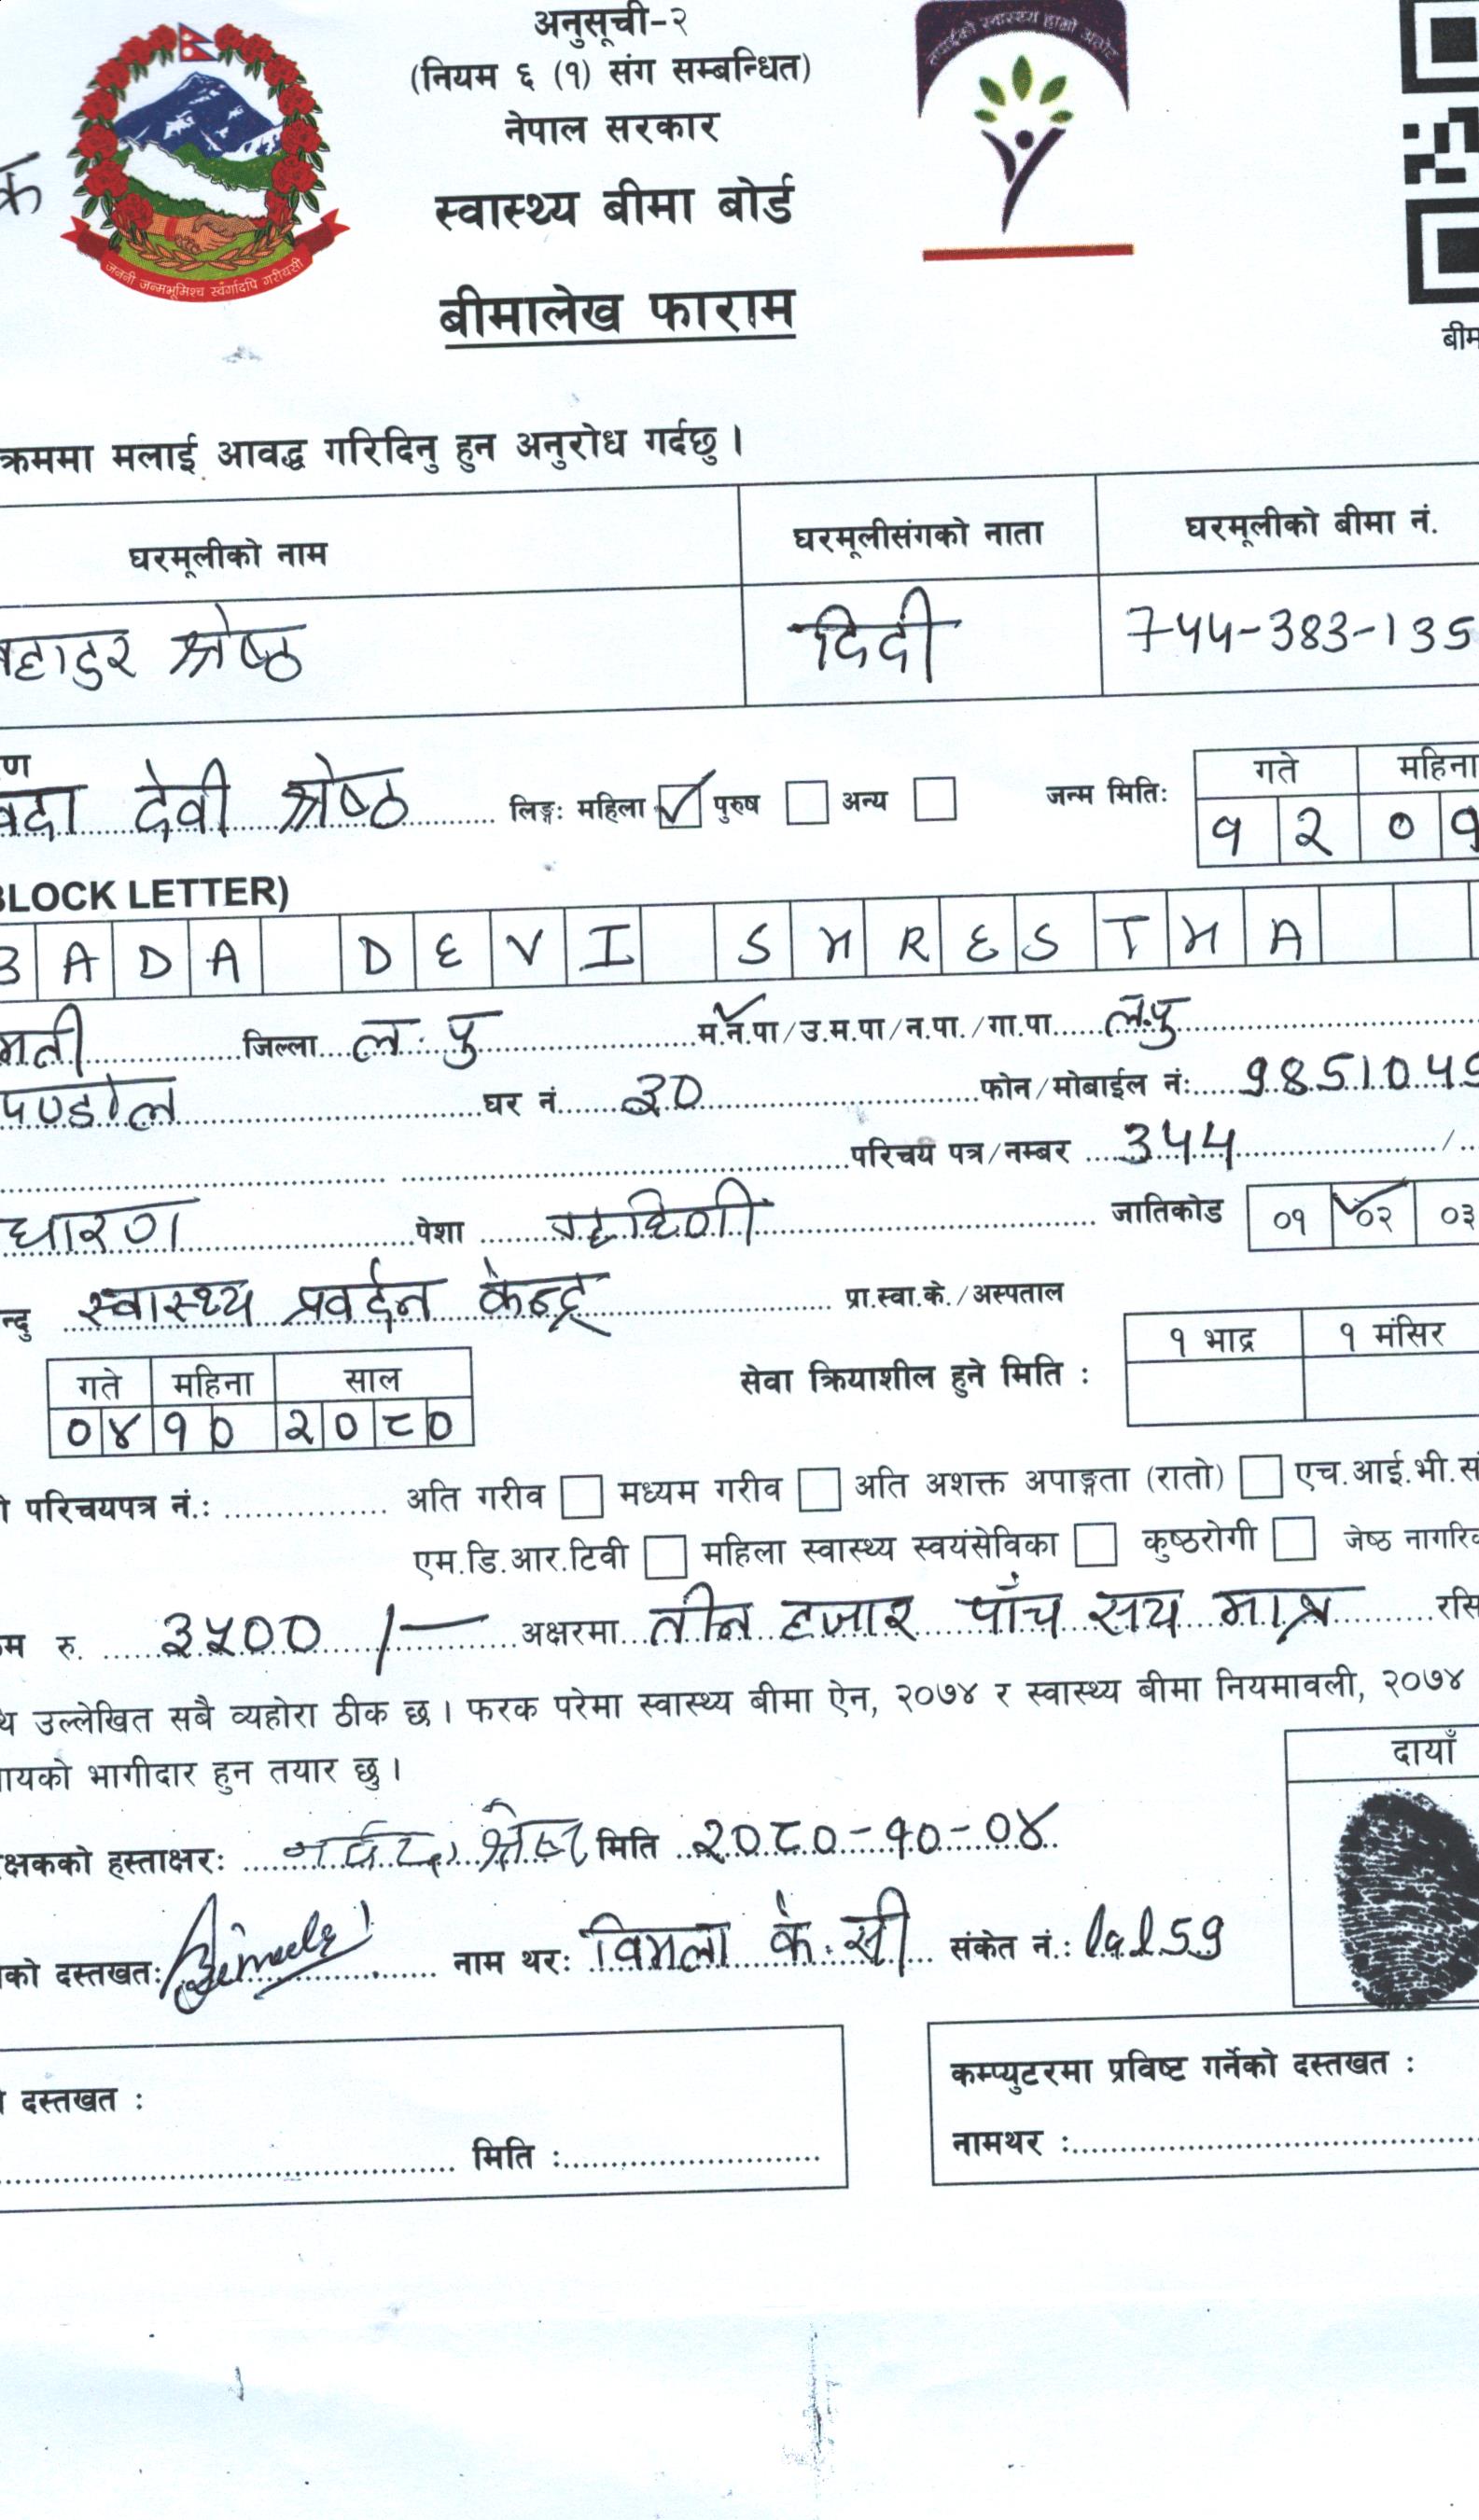 अनुसूची-२
(नियम ६ (१) संग सम्बन्धित)
नेपाल सरकार
स्वास्थ्य बीमा बोर्ड
बीमालेख फाराम
तपाईको स्वास्थ्य हाम्रो
जननी जन्मभूमिश्च स्वर्गादपि गरीयसी
बीम
क्रममा मलाई आवद्ध गरिदिनु हुन अनुरोध गर्दछु ।
घरमूलीको नाम घरमूलीसंगको नाता घरमूलीको बीमा नं.
बहादुर श्रेष्ठ दिदी 744-383-135
ण
देवी श्रेष्ठ लिङ्ग: महिला ✓ पुरुष अन्य जन्म मिति: गते महिना
१ २ ० ९
BLOCK LETTER)
B A D A D E V I S H R E S T H A
मती जिल्ला ल. पु म.न.पा/उ.म.पा/न.पा./गा.पा ल.पु
घर नं. 30 फोन/मोबाईल नं: 985104
परिचय पत्र/नम्बर 344 /
धारण पेशा गृहिणी जातिकोड ०१ ०२ ०३
न्दु स्वास्थ्य प्रवर्दन केन्द्र प्रा.स्वा.के./अस्पताल
गते महिना साल सेवा क्रियाशील हुने मिति : १ भाद्र १ मंसिर
०४ १० २०८०
परिचयपत्र नं.: अति गरीव मध्यम गरीव अति अशक्त अपाङ्गता (रातो) एच.आई.भी.सं
एम.डि.आर.टिवी महिला स्वास्थ्य स्वयंसेविका कुष्ठरोगी जेष्ठ नागरिक
म रु. ३५०० /- अक्षरमा तीन हजार पाँच सय मात्र रसि
थि उल्लेखित सबै व्यहोरा ठीक छ । फरक परेमा स्वास्थ्य बीमा ऐन, २०७४ र स्वास्थ्य बीमा नियमावली, २०७४
ायको भागीदार हुन तयार छु ।
दायाँ
क्षकको हस्ताक्षर: श्रेष्ठ मिति २०८०-१०-०४
को दस्तखत: नाम थर: विमला के.सी संकेत नं.:
दस्तखत :
मिति :
कम्प्युटरमा प्रविष्ट गर्नेको दस्तखत :
नामथर :